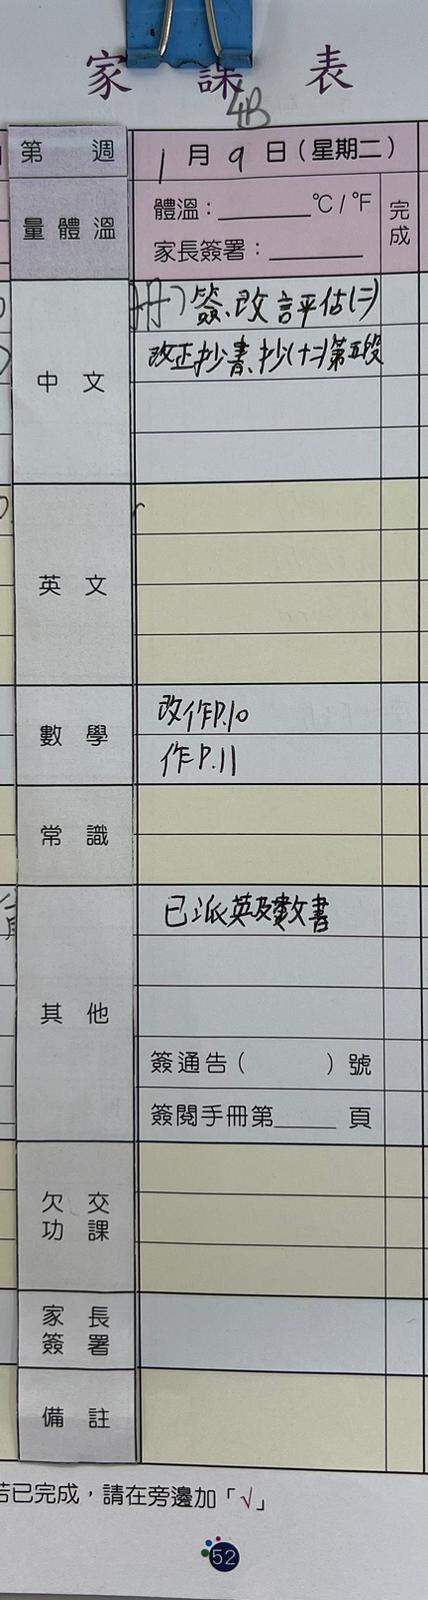 家課表
4B
第 週
1月9日(星期二)
量體溫
體溫：______°C/°F
家長簽署：______
完成
中文
冊)簽、改評估(二)
改正抄書、抄(十二)第五段
英文
數學
改作P.10
作P.11
常識
其他
已派英及數書
簽通告( )號
簽閱手冊第____頁
欠交功課
家長簽署
備註
若已完成，請在旁邊加「√」
52